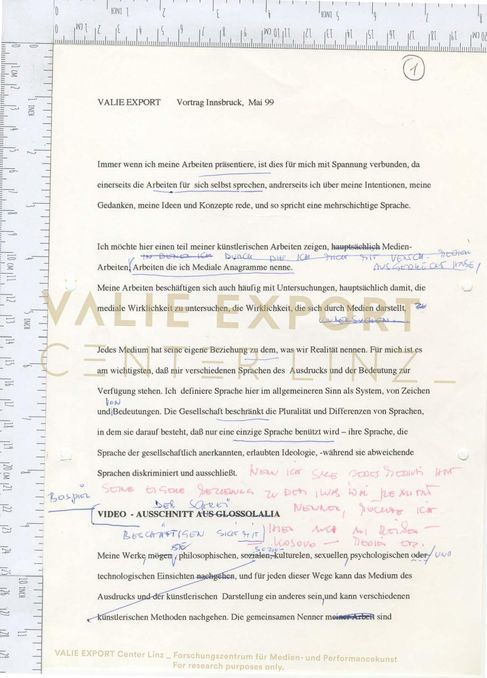 1
VALIE EXPORT Vortrag Innsbruck, Mai 99
Immer wenn ich meine Arbeiten präsentiere, ist dies für mich mit Spannung verbunden, da
einerseits die Arbeiten für sich selbst sprechen, andrerseits ich über meine Intentionen, meine
Gedanken, meine Ideen und Konzepte rede, und so spricht eine mehrschichtige Sprache.
Ich möchte hier einen teil meiner künstlerischen Arbeiten zeigen, hauptsächlich Medien-
IN DENEN ICH DURCH DIE ICH MICH MIT VERSCH. MEDIEN
AUSGEDRÜCKT HABE,
Arbeiten, Arbeiten die ich Mediale Anagramme nenne.
Meine Arbeiten beschäftigen sich auch häufig mit Untersuchungen, hauptsächlich damit, die
mediale Wirklichkeit zu untersuchen, die Wirklichkeit, die sich durch Medien darstellt, zu
UNTERSUCHEN.
VALIE EXPORT
CENTER LINZ_
Jedes Medium hat seine eigene Beziehung zu dem, was wir Realität nennen. Für mich ist es
am wichtigsten, daß mir verschiedenen Sprachen des Ausdrucks und der Bedeutung zur
Verfügung stehen. Ich definiere Sprache hier im allgemeinen Sinn als System, von Zeichen
VON
und Bedeutungen. Die Gesellschaft beschränkt die Pluralität und Differenzen von Sprachen,
in dem sie darauf besteht, daß nur eine einzige Sprache benützt wird – ihre Sprache, die
Sprache der gesellschaftlich anerkannten, erlaubten Ideologie, -während sie abweichende
Sprachen diskriminiert und ausschließt. WENN ICH SAGE JEDES MEDIUM HAT
SEINE EIGENE BEZIEHUNG ZU DEM WAS WIR REALITÄT
BEISPIEL
DER SCHREI
NENNEN,
ICH
VIDEO - AUSSCHNITT AUS GLOSSOLALIA
HIER AUCH
BESCHÄFTIGEN SICH MIT
KOSOVO - MEDIEN ETC.
Meine Werke mögen, philosophischen, sozialen, kulturelen, sexuellen, psychologischen oder UND
technologischen Einsichten nachgehen, und für jeden dieser Wege kann das Medium des
Ausdrucks und der künstlerischen Darstellung ein anderes sein, und kann verschiedenen
künstlerischen Methoden nachgehen. Die gemeinsamen Nenner meiner Arbeit sind
VALIE EXPORT Center Linz _ Forschungszentrum für Medien- und Performancekunst
For research purposes only.